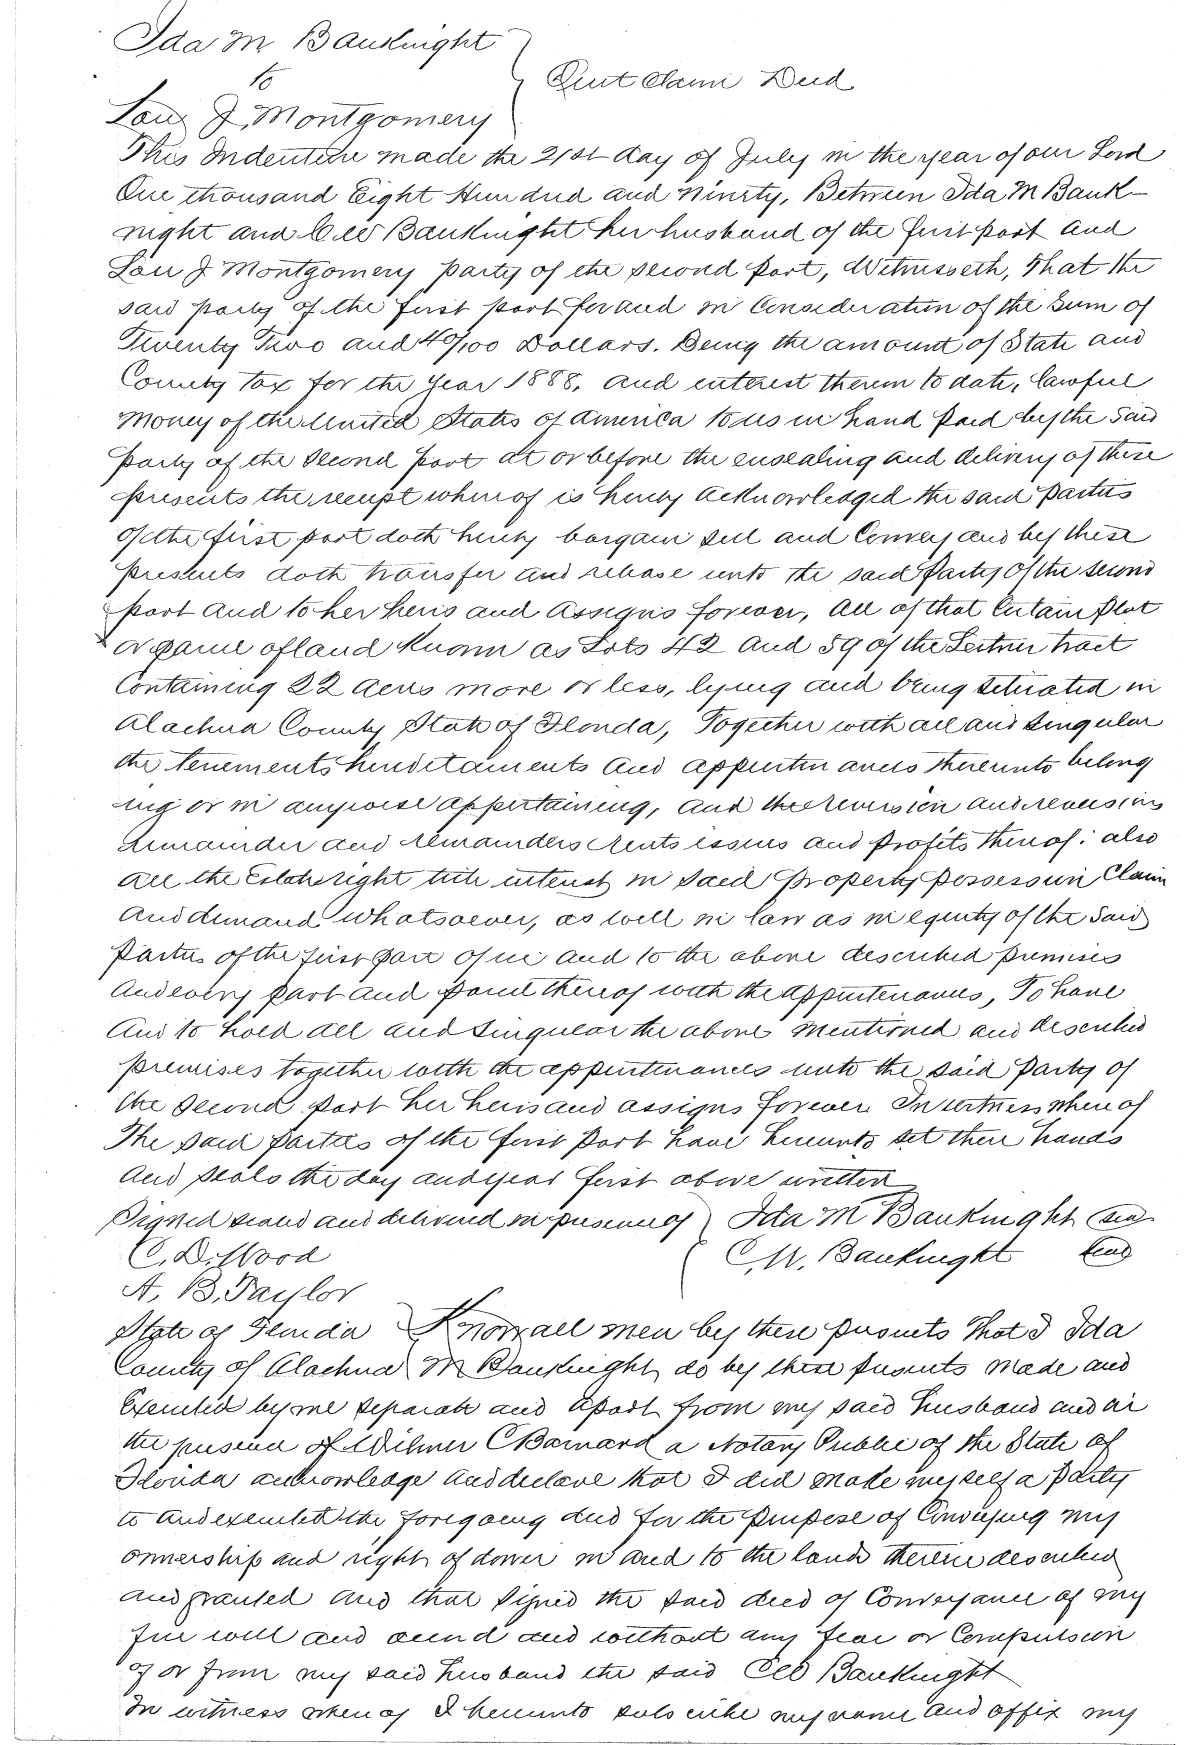 Ida M Bauknight
to
Quit Claim Deed
Lou J. Montgomery
This Indenture made the 21st day of July in the year of our Lord
One thousand Eight Hundred and Ninety, Between Ida M Bauk-
night and C W Bauknight her husband of the first part and
Lou J Montgomery party of the second part, Witnesseth, That the
said party of the first part for and in Consideration of the Sum of
Twenty Two and 40/100 Dollars. Being the amount of State and
County Tax for the Year 1888, and interest thereon to date, lawful
Money of the United States of America to us in hand Paid by the said
Party of the Second part at or before the ensealing and delivery of these
presents the receipt whereof is hereby acknowledged the said Parties
of the first part doth hereby bargain sell and Convey and by these
presents doth transfer and release unto the said Party of the second
part and to her heirs and assigns forever, all of that Certain Plot
or parcel of land known as Lots 42 and 59 of the Leitner tract
Containing 22 acres more or less, lying and being situated in
Alachua County State of Florida, Together with all and singular
the tenements hereditaments and appurtenances thereunto belong
ing or in anywise appertaining, and the reversion and reversions
remainder and remainders rents issues and profits thereof: also
all the Estate right title interest in said Property Possession Claim
and demand whatsoever, as well in law as in equity of the said
Parties of the first part of in and to the above described premises
and every part and parcel thereof with the appurtenances, To have
and to hold all and singular the above mentioned and described
premises together with the appurtenances unto the said Party of
the Second part her heirs and assigns forever In witness whereof
The said parties of the first Part have hereunto set their hands
and seals the day and year first above written
Signed sealed and delivered in presence of Ida M Bauknight seal
C. D. Wood C. W. Bauknight seal
A. B. Taylor
State of Florida Know all men by these presents That I Ida
County of Alachua M Bauknight, do by these presents made and
Executed by me separate and apart from my said husband and in
the presence of Wilmer C Barnard a Notary Public of the State of
Florida acknowledge and declare that I did make myself a party
to and executed the foregoing deed for the purpose of Conveying my
ownership and right of dower in and to the lands therein described
and granted and that signed the said deed of Conveyance of my
free will and accord and without any fear or Compulsion
of or from my said husband the said C W Bauknight
In witness whereof I hereunto subscribe my name and affix my